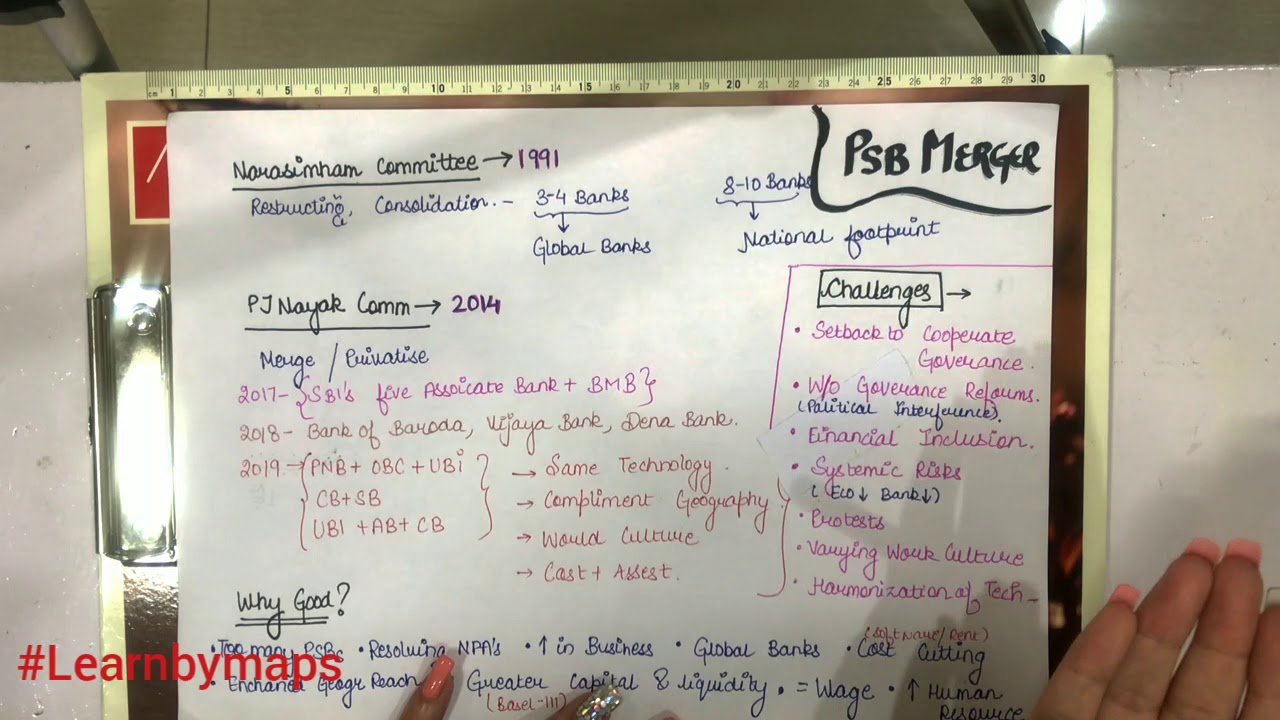 cm 1 2 3 4 5 6 7 8 9 10 11 12 13 14 15 16 17 18 19 20 21 22 23 24 25 26 27 28 29 30
PSB MERGER
Narasimham Committee → 1991
Restructing, Consolidation. - 3-4 Banks
↓
Global Banks
8-10 Banks
↓
National footprint
PJ Nayak Comm → 2014
Merge / Privatise
2017 - {SBI's five Assoicate Bank + BMB}
2018 - Bank of Baroda, Vijaya Bank, Dena Bank.
2019. → {PNB + OBC + UBI
CB + SB
UBI + AB + CB}
→ Same Technology.
→ Compliment Geography
→ World Culture
→ Cost + Assest.
Challenges →
• Setback to Cooperate
Goverance.
• W/o Goverance Reforms.
(Political Interference).
• Financial Inclusion.
• Systemic Risks
(Eco↓ Bank↓)
• Protests
• Varying Work Culture
• Harmonization of Tech -
Why Good?
• Too many PSBs • Resolving NPA's • ↑ in Business • Global Banks • Cost Cutting
(Software/Rent)
• Enchanced Geagr Reach Greater Capital & liquidity • = Wage • ↑ Human
(Basel-III) Resource
#Learnbymaps